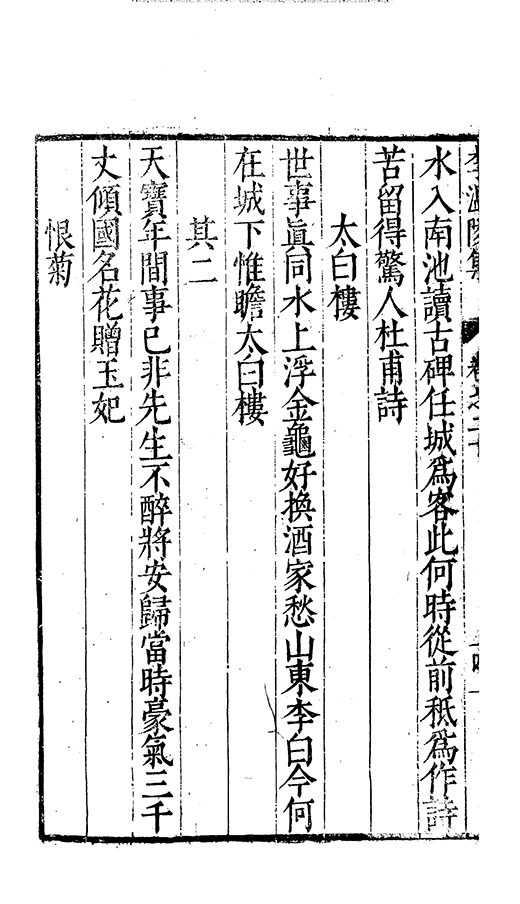 水入南池讀古碑任城爲客此何時從前秪爲作詩
苦留得驚人杜甫詩
太白樓
世事眞同水上浮金龜好換酒家愁山東李白今何
在城下惟瞻太白樓
其二
天寶年間事已非先生不醉將安歸當時豪氣三千
丈傾國名花贈玉妃
恨菊